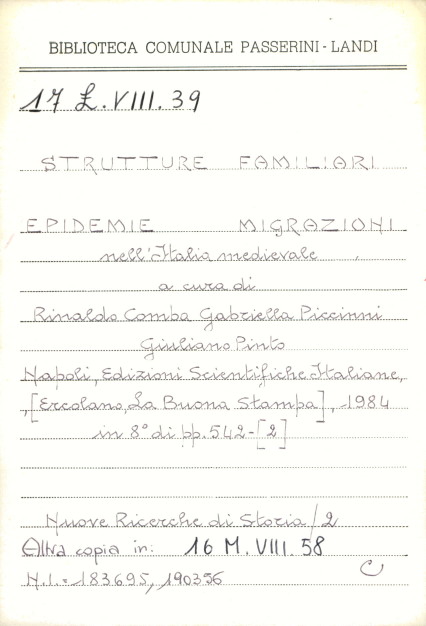 BIBLIOTECA COMUNALE PASSERINI-LANDI
17 L.VIII.39
STRUTTURE FAMILIARI
EPIDEMIE MIGRAZIONI
nell'Italia medievale
a cura di
Rinaldo Comba Gabriella Piccinni
Giuliano Pinto
Napoli, Edizioni Scientifiche Italiane,
[Ercolano, La Buona Stampa], 1984
in 8° di pp. 542-[2]
Nuove Ricerche di Storia / 2
Altra copia in: 16 M.VIII.58
N.I.=183695, 190356
C